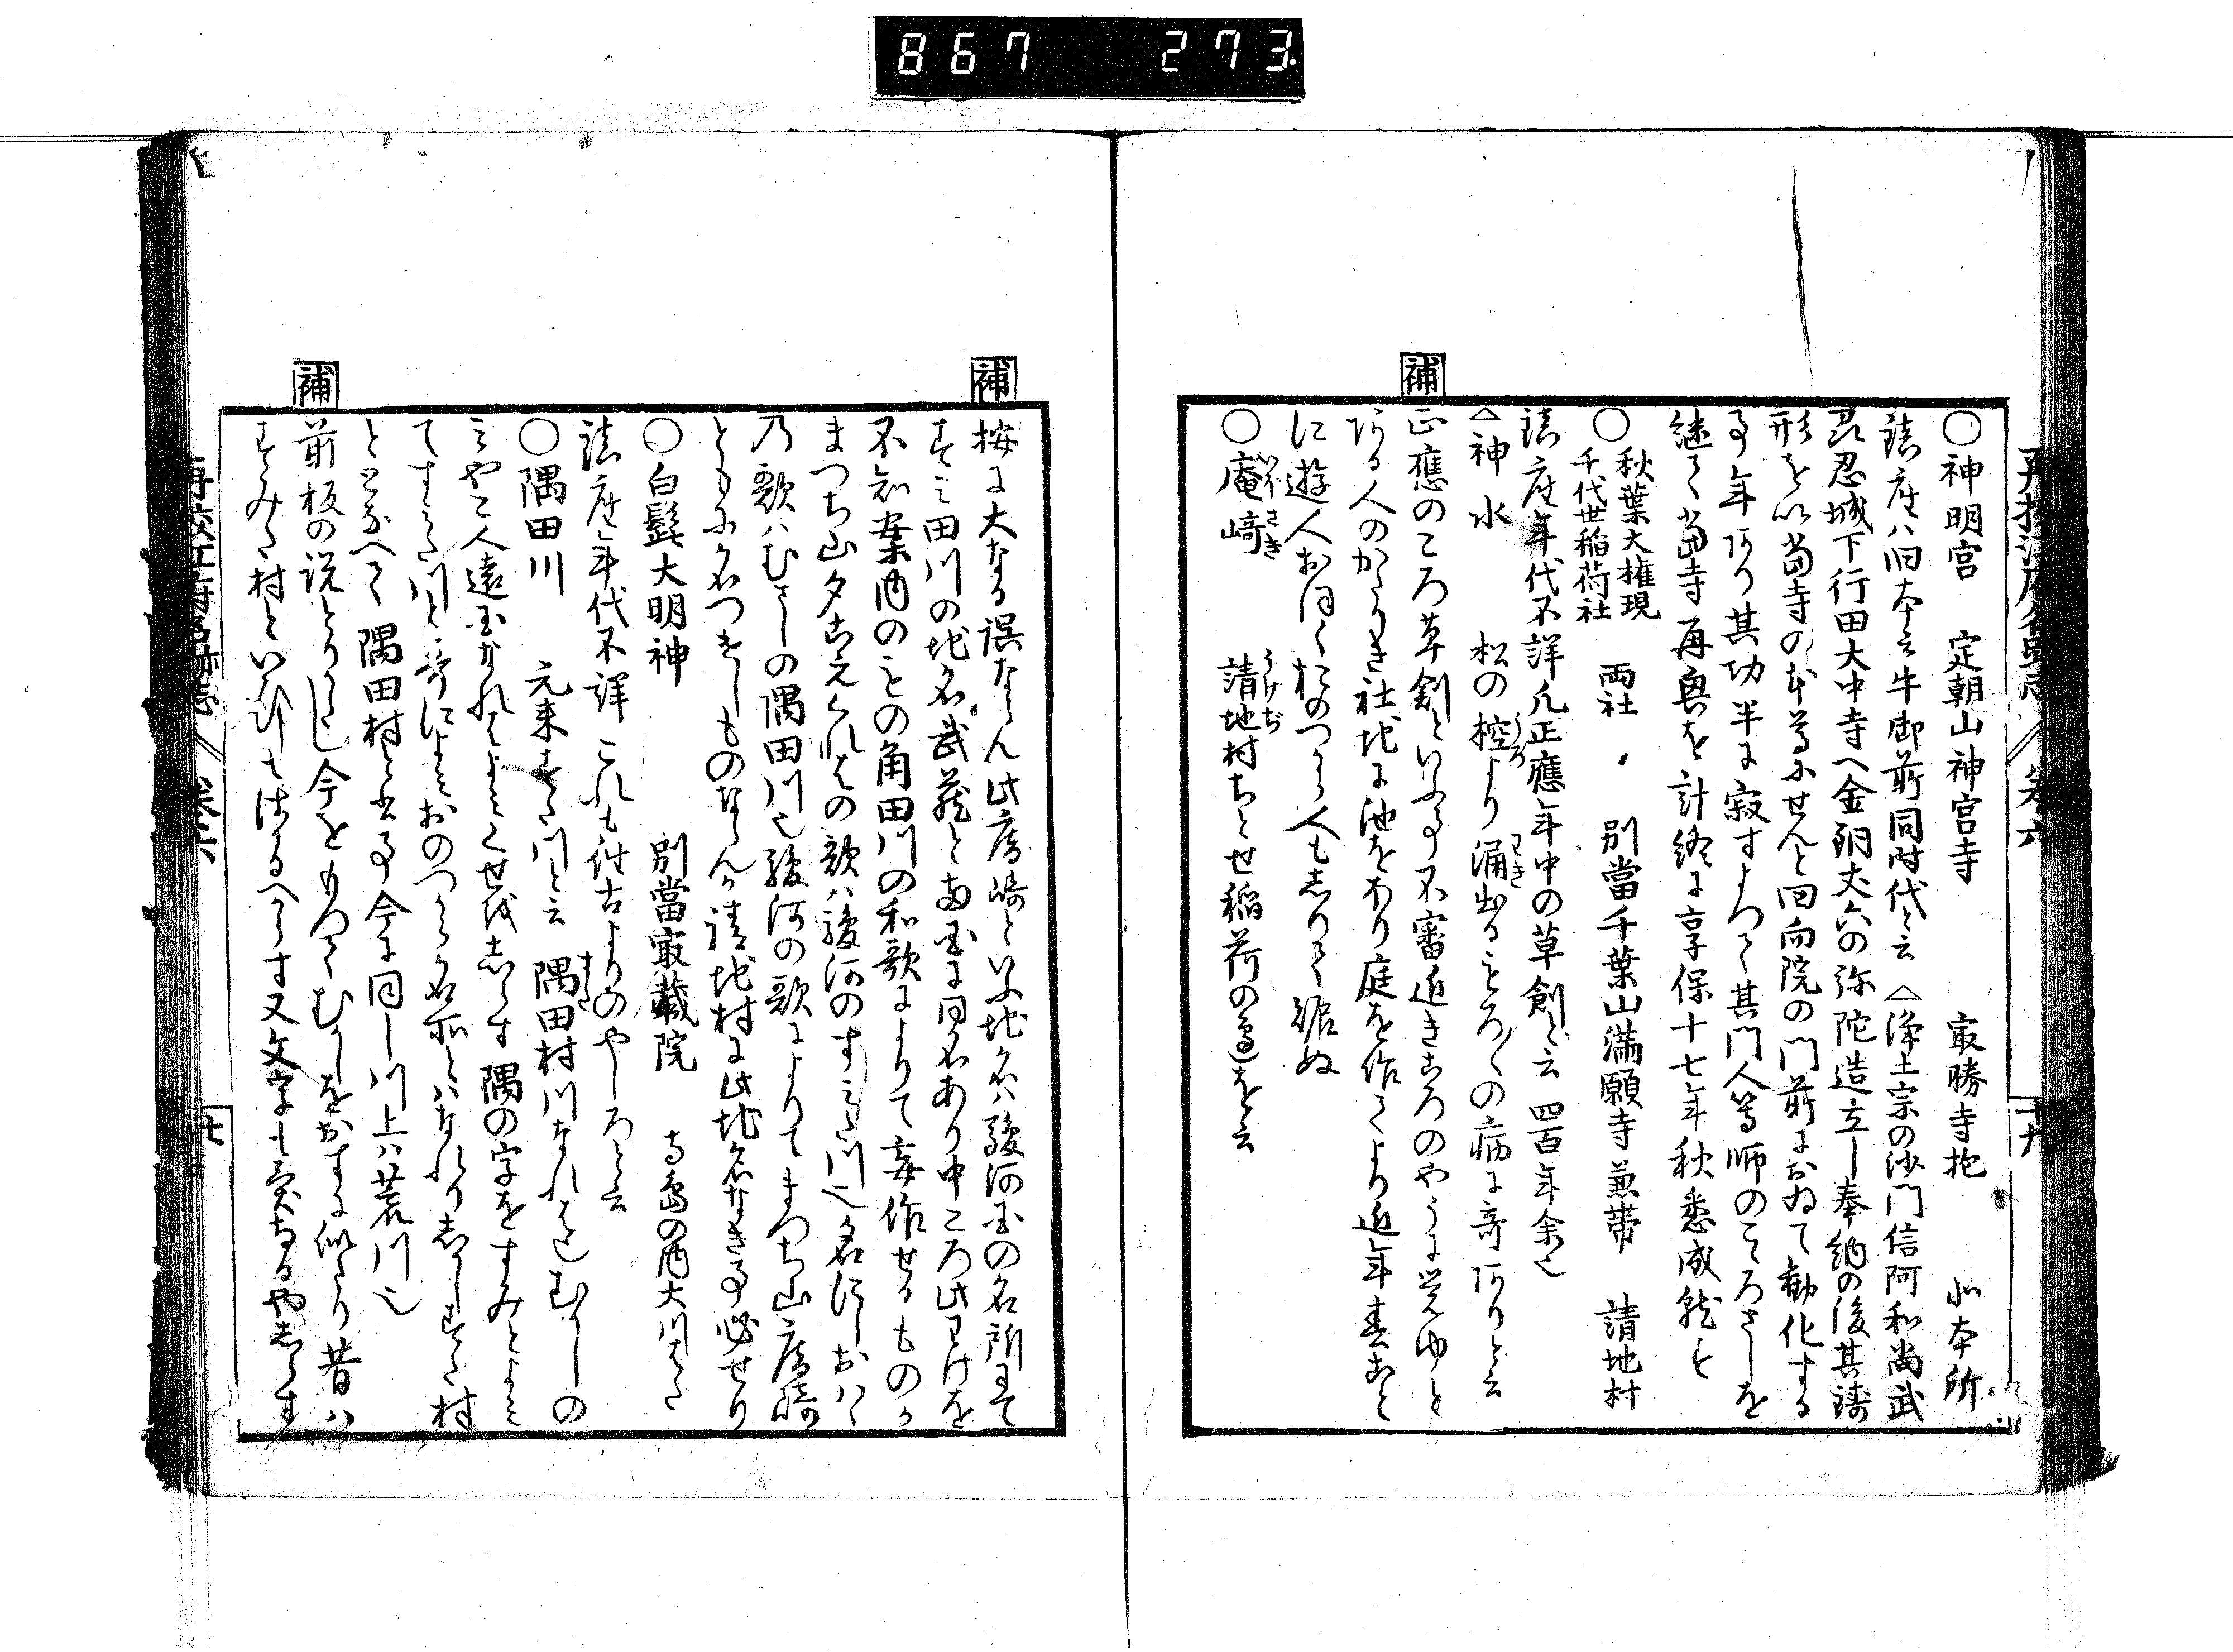 867 273
〇神明宮 定朝山神宮寺 㝡勝寺抱 北本所
鎮座ハ旧本云牛御前同時代と云 △浄土宗の沙門信阿和尚武
刕忍城下行田大中寺へ金銅丈六の弥陀造立し奉納の後其鋳
形を以当寺の本尊にせんと回向院の門前におゐて勧化する
事年あり其功半に寂すよつて其門人等師のこゝろさしを
継て当寺再興を計終に享保十七年秋悉成就す
〇秋葉大権現
千代世稲荷社 両社 別當千葉山満願寺兼帯 請地村
鎮座年代不詳凡正應年中の草創と云 四百年余也
△神水 松の控うろより涌わき出るところ〳〵の病に奇ありと云
補
正應のころ草創といふ事不審近きころのやうに覚ゆと
ある人のかたりき社地に池をほり庭を作てより近年春秋
に遊人おほくおのつから人もしりて
〇庵崎いほさき 請地うけぢ村ちとせ稲荷の邊を云
補
按に大なる誤ならん此庵崎といふ地名ハ駿河国の名所にて
すみ田川の地名武蔵と両国に同名あり中ころ此わけを
不知案内のもの角田川の和歌によりて妄作せるものか
まつち山夕こえくれはの歌ハ駿河のすみた川也名にしおハヽ
乃歌ハむさしの隅田川也駿河の歌によりてまつち山庵崎
ともに名つけしものならんか請地村に此地名なき事必せり
〇白髭大明神 別當㝡蔵院 寺島の内大川はた
鎮座年代不詳これも往古よりのやしろと云
〇隅田川 元来すた川と云 隅田すだ村川なれは也むかしの
みやこ人遠国かれはよくせ我しらす隅の字をすみとよみ
てすみた川と哥によみおのつから名所とハなれりしかしすた村
ととなへて隅田村と書事今に同し川上ハ荒川也
補
前板の説とりかたし今をもつてむかしをおすに似たり昔ハ
すみた村といひしはるへからす又文字も実なるやしらす
再校江戸名跡志 巻六 十九
再校江府名跡志 巻六 廿